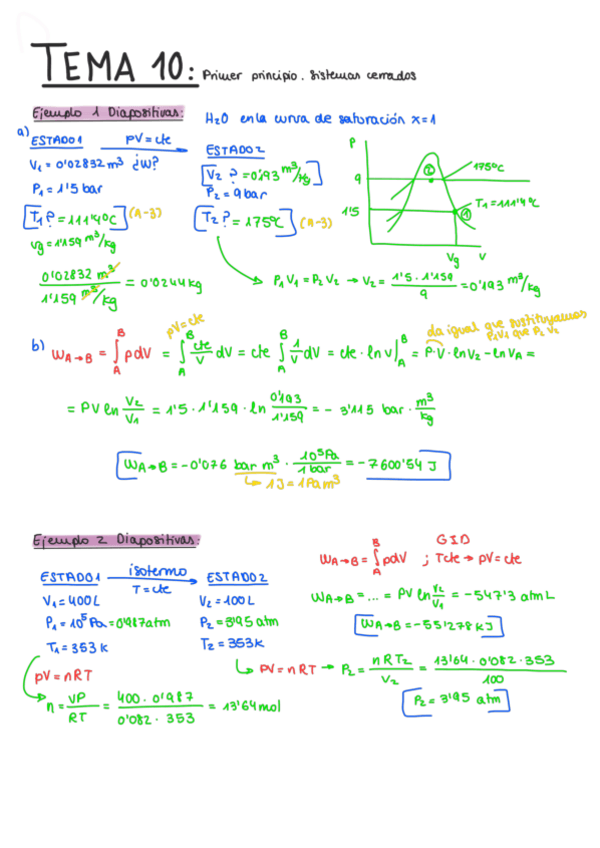 TEMA 10: Primer principio. Sistemas cerrados
Ejemplo 1 Diapositivas:
H2O en la curva de saturación x=1
a) ESTADO 1 pV=cte ESTADO 2
V1 = 0'02832 m³ ¿W?
V2? = 0'193 m³/kg
P1 = 1'5 bar
P2 = 9 bar
T1? = 111'4ºC (A-3)
T2? = 175ºC (A-3)
vg = 1'159 m³/kg
0'02832 m³ / 1'159 m³/kg = 0'0244 kg
P1V1 = P2V2 → V2 = 1'5 · 1'159 / 9 = 0'193 m³/kg
P
9
1'5
175ºC
T1 = 111'4ºC
2
1
Vg
V
b) WA→B = ∫AB pdV = ∫AB cte/V dV = cte ∫AB 1/V dV = cte · ln V|AB = P·V · ln V2 - ln VA =
pV=cte
da igual que sustituyamos
P1V1 que P2V2
= PV ln V2/V1 = 1'5 · 1'159 · ln 0'193/1'159 = - 3'115 bar · m³/kg
WA→B = -0'076 bar m³ · 10⁵Pa/1 bar = -7600'54 J
↳ 1J = 1Pa m³
Ejemplo 2 Diapositivas:
ESTADO 1 isotermo T=cte ESTADO 2
V1 = 400L
V2 = 100L
P1 = 10⁵ Pa = 0'987atm
P2 = 3'95 atm
T1 = 353 K
T2 = 353K
pV = nRT
n = VP/RT = 400 · 0'987 / 0'082 · 353 = 13'64 mol
GID
WA→B = ∫AB pdV ; Tcte → pV=cte
WA→B = ... = PV ln V2/V1 = -547'3 atm L
WA→B = -55'278 KJ
↳ PV = nRT → P2 = nRT2/V2 = 13'64 · 0'082 · 353 / 100
P2 = 3'95 atm